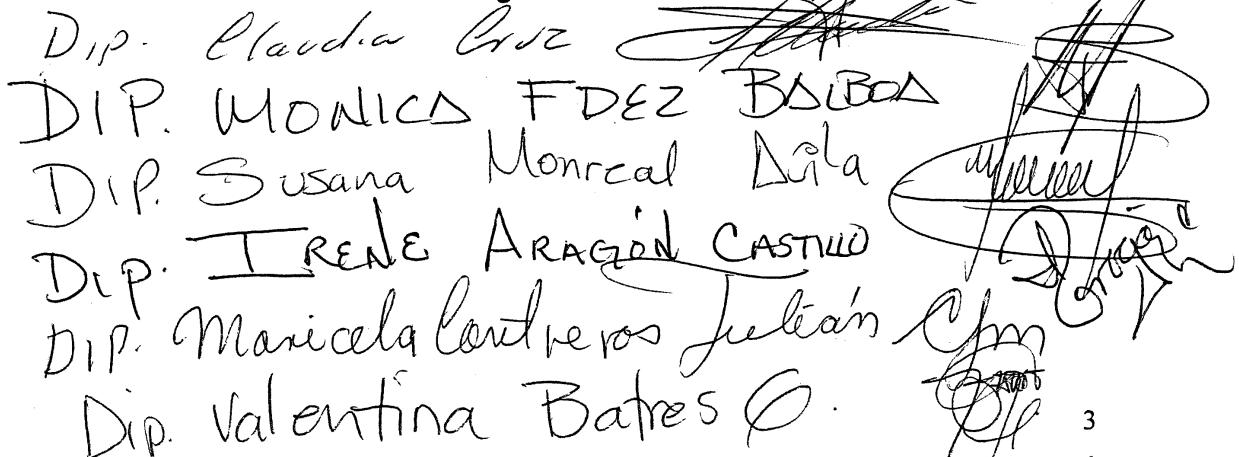 Dip. Claudia Cruz
DIP. MONICA FDEZ BALBOA
DIP. Susana Monreal Ávila
Dip. IRENE ARAGÓN CASTILLO
DIP. Maricela Contreros Julián
Dip. Valentina Batres G.
3